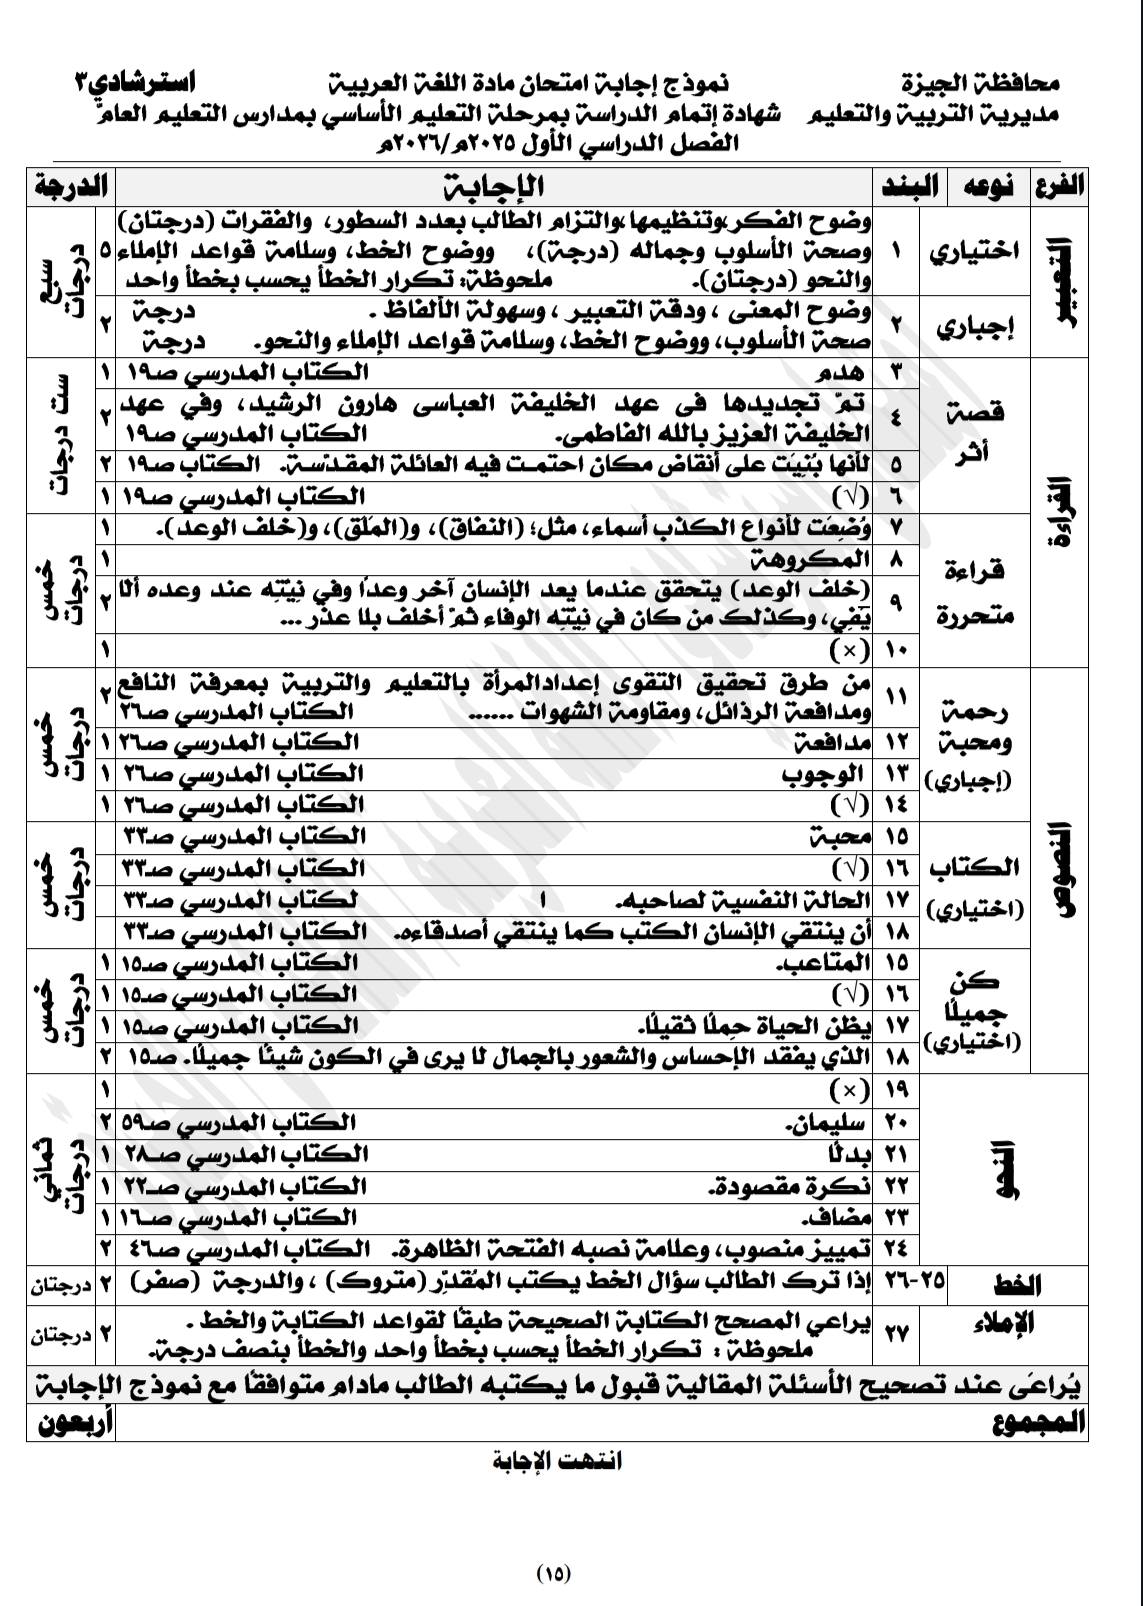 محافظة الجيزة نموذج إجابة امتحان مادة اللغة العربية استرشادي٣
مديرية التربية والتعليم شهادة إتمام الدراسة بمرحلة التعليم الأساسي بمدارس التعليم العام
الفصل الدراسي الأول ٢٠٢٥م/٢٠٢٦م
الفرع نوعه البند الإجابة الدرجة
التعبير
اختياري ١ وضوح الفكر،وتنظيمها،والتزام الطالب بعدد السطور، والفقرات (درجتان)
وصحة الأسلوب وجماله (درجة)، ووضوح الخط، وسلامة قواعد الإملاء
والنحو (درجتان). ملحوظة: تكرار الخطأ يحسب بخطأ واحد
٥ سبع درجات
إجباري ٢ وضوح المعنى ، ودقة التعبير ، وسهولة الألفاظ . درجة
صحة الأسلوب، ووضوح الخط، وسلامة قواعد الإملاء والنحو. درجة
٢
القراءة
قصة أثر
٣ هدم الكتاب المدرسي صـ١٩ ١ ست درجات
٤ تمّ تجديدها فى عهد الخليفة العباسى هارون الرشيد، وفي عهد
الخليفة العزيز بالله الفاطمى. الكتاب المدرسي صـ١٩ ٢
٥ لأنها بُنِيَت على أنقاض مكان احتمت فيه العائلة المقدّسة. الكتاب صـ١٩ ٢
٦ (√) الكتاب المدرسي صـ١٩ ١
قراءة متحررة
٧ وُضِعَت لأنواع الكذب أسماء، مثل؛ (النفاق)، و(المَلَق)، و(خلف الوعد). ١ خمس درجات
٨ المكروهة ١
٩ (خلف الوعد) يتحقق عندما يعد الإنسان آخر وعدًا وفي نِيّتِه عند وعده ألا
يَفِي، وكذلك من كان في نِيّتِه الوفاء ثمّ أخلف بلا عذر ... ٢
١٠ (×) ١
النصوص
رحمة ومحبة (إجباري)
١١ من طرق تحقيق التقوى إعدادالمرأة بالتعليم والتربية بمعرفة النافع
ومدافعة الرذائل، ومقاومة الشهوات ...... الكتاب المدرسي صـ٢٦ ٢ خمس درجات
١٢ مدافعة الكتاب المدرسي صـ٢٦ ١
١٣ الوجوب الكتاب المدرسي صـ٢٦ ١
١٤ (√) الكتاب المدرسي صـ٢٦ ١
الكتاب (اختياري)
١٥ محبة الكتاب المدرسي صـ٣٣ خمس درجات
١٦ (√) الكتاب المدرسي صـ٣٣
١٧ الحالة النفسية لصاحبه. ا لكتاب المدرسي صـ٣٣
١٨ أن ينتقي الإنسان الكتب كما ينتقي أصدقاءه. الكتاب المدرسي صـ٣٣
كن جميلًا (اختياري)
١٥ المتاعب. الكتاب المدرسي صـ١٥ ١ خمس درجات
١٦ (√) الكتاب المدرسي صـ١٥ ١
١٧ يظن الحياة حِملًا ثقيلًا. الكتاب المدرسي صـ١٥ ١
١٨ الذي يفقد الإحساس والشعور بالجمال لا يرى في الكون شيئًا جميلًا. صـ١٥ ٢
النحو
١٩ (×) ١ ثماني درجات
٢٠ سليمان. الكتاب المدرسي صـ٥٩ ٢
٢١ بدلًا الكتاب المدرسي صـ٢٨ ١
٢٢ نكرة مقصودة. الكتاب المدرسي صـ٢٢ ١
٢٣ مضاف. الكتاب المدرسي صـ١٦ ١
٢٤ تمييز منصوب، وعلامة نصبه الفتحة الظاهرة. الكتاب المدرسي صـ٤٦ ٢
الخط ٢٥-٢٦ إذا ترك الطالب سؤال الخط يكتب المُقدِّر (متروك) ، والدرجة (صفر) ٢ درجتان
الإملاء ٢٧ يراعي المصحح الكتابة الصحيحة طبقًا لقواعد الكتابة والخط .
ملحوظة : تكرار الخطأ يحسب بخطأ واحد والخطأ بنصف درجة. ٢ درجتان
يُراعَى عند تصحيح الأسئلة المقالية قبول ما يكتبه الطالب مادام متوافقًا مع نموذج الإجابة
المجموع أربعون
انتهت الإجابة
(١٥)